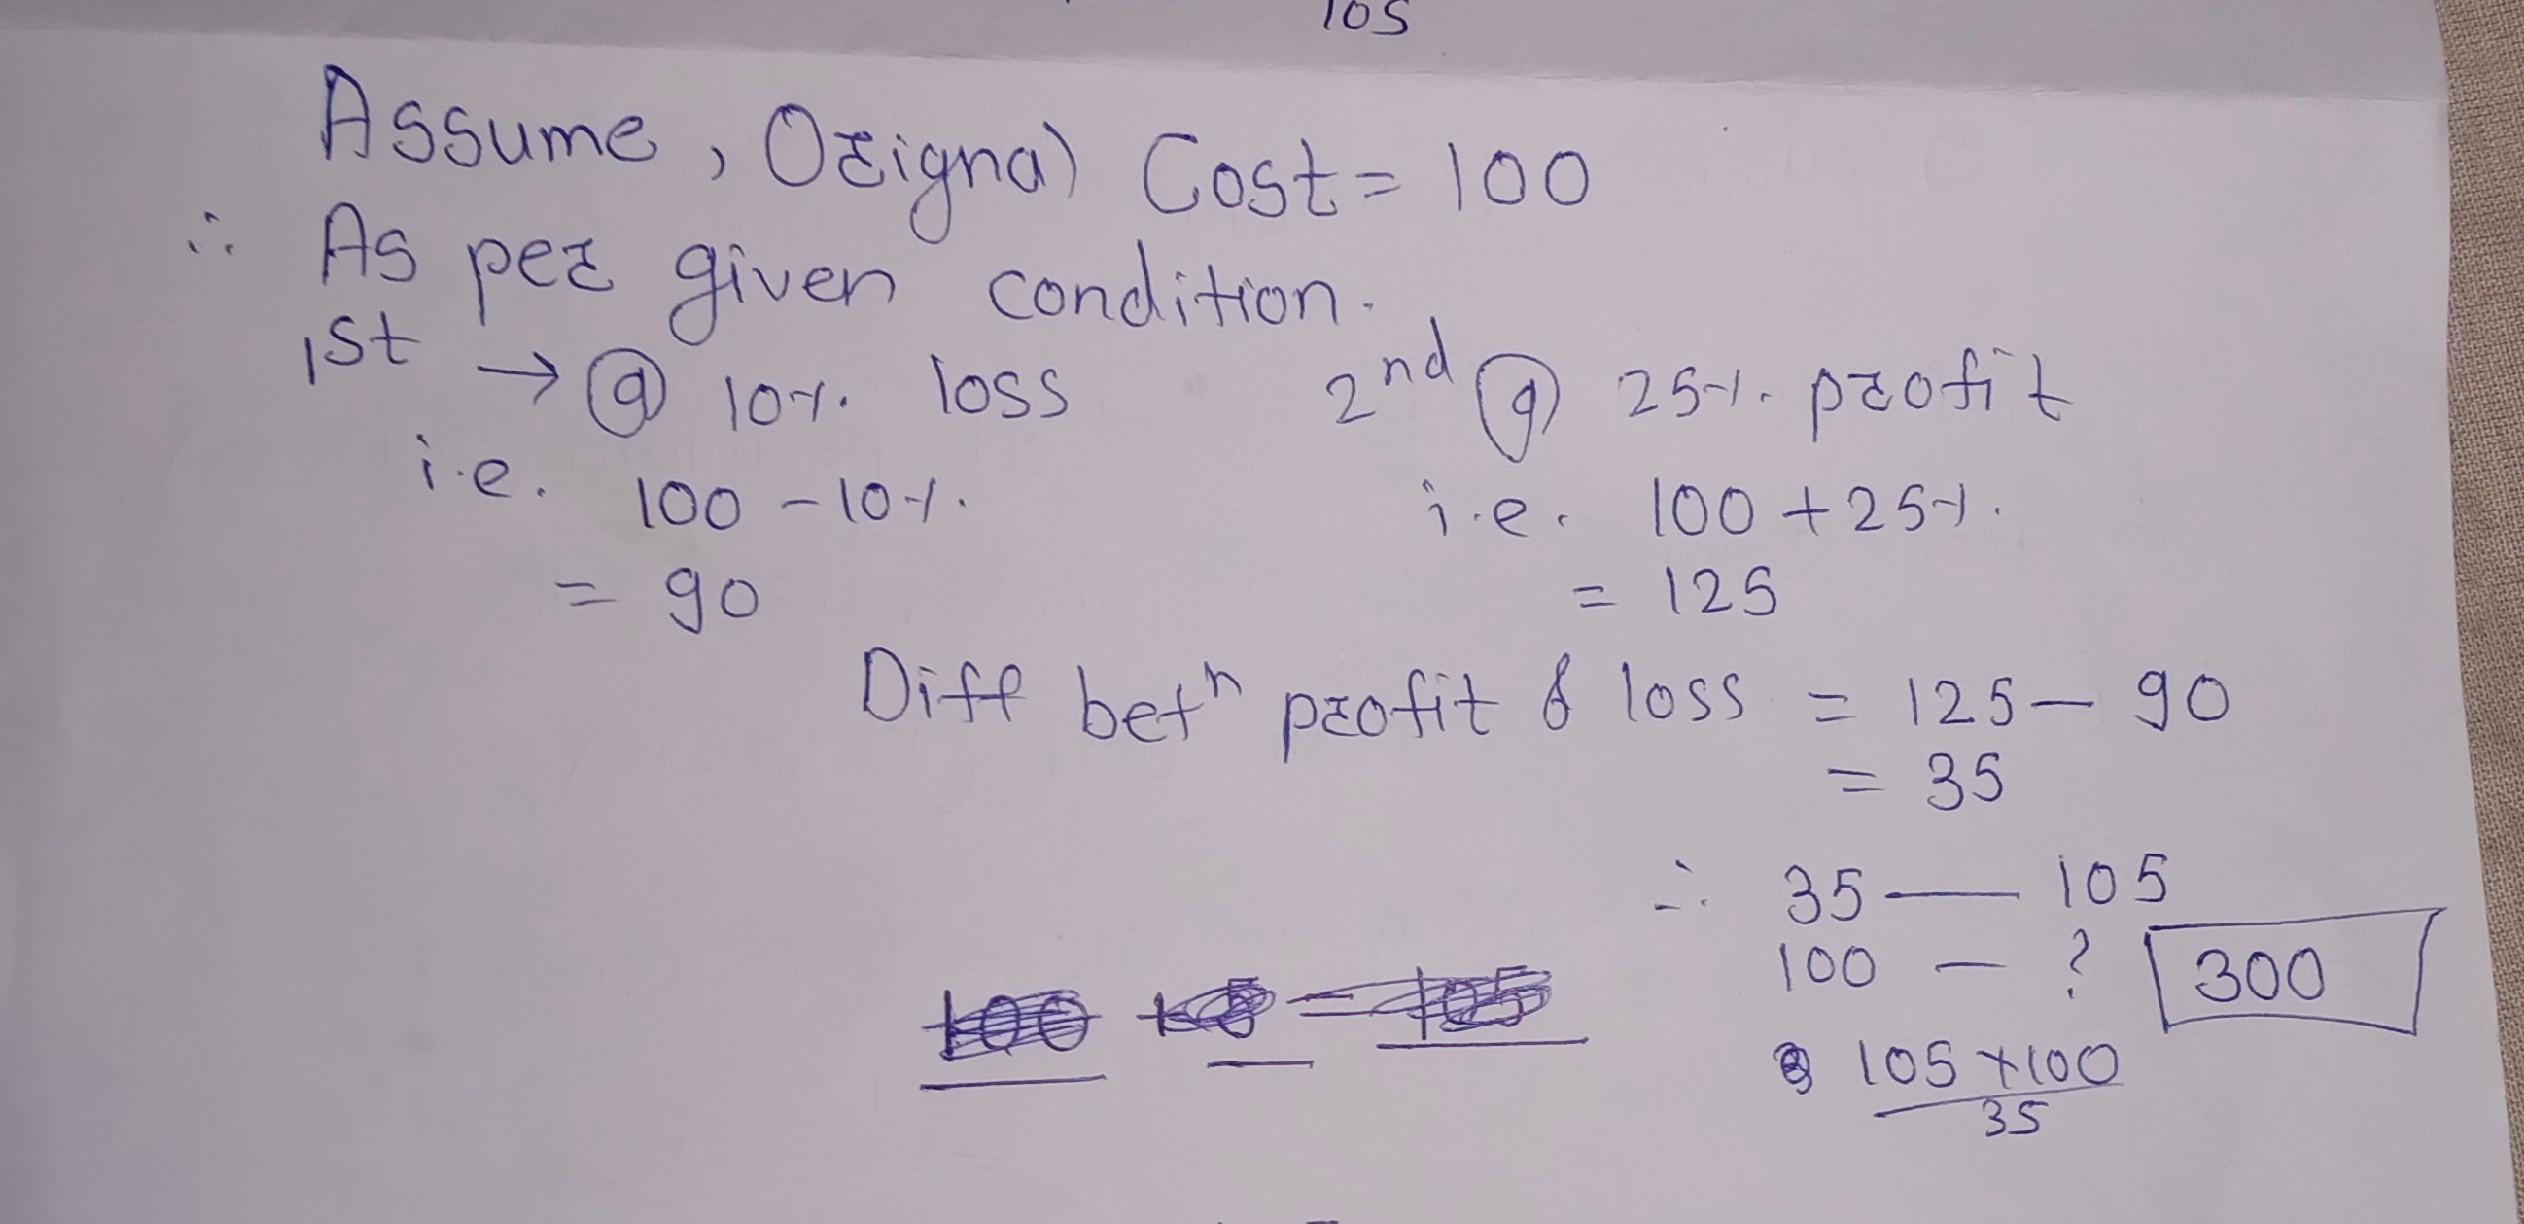 105
Assume, Orignal Cost = 100
∴ As per given condition.
1st → @ 10% loss 2nd @ 25% profit
i.e. 100 - 10% i.e. 100 + 25%
= 90 = 125
Diff betn profit & loss = 125 - 90
= 35
∴ 35 — 105
100 — ? 300
105 × 100
35